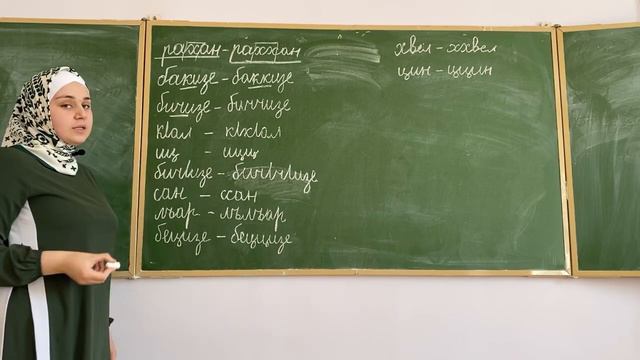 рахан – раххан
бакизе – баккизе
бичизе – биччизе
кӏал – кӏкӏал
иц – ицц
бичӏизе – бичӏчӏизе
сан – ссан
лъар – лълъар
бецизе – беццизе
хвел – ххвел
цин – ццин